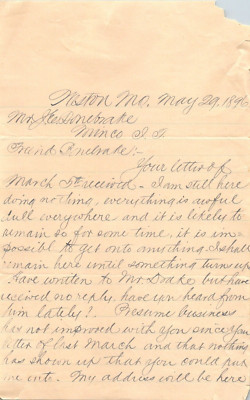 Weston Mo. May 29, 1896
Mr J.C. Pinebrake
Minco I. T.
Friend Pinebrake:-
Your letter of
March received - I am still here
doing nothing, everything is awful
dull everywhere and it is likely to
remain so for some time, it is im-
possibl to get onto anything. I shall
remain here until something turns up
Have written to Mr. but have
received no reply, have you heard from
him lately?. Presume business
has not improved with you since your
letter of last March and that nothing
has shown up that you could put
me onto. My address will be here